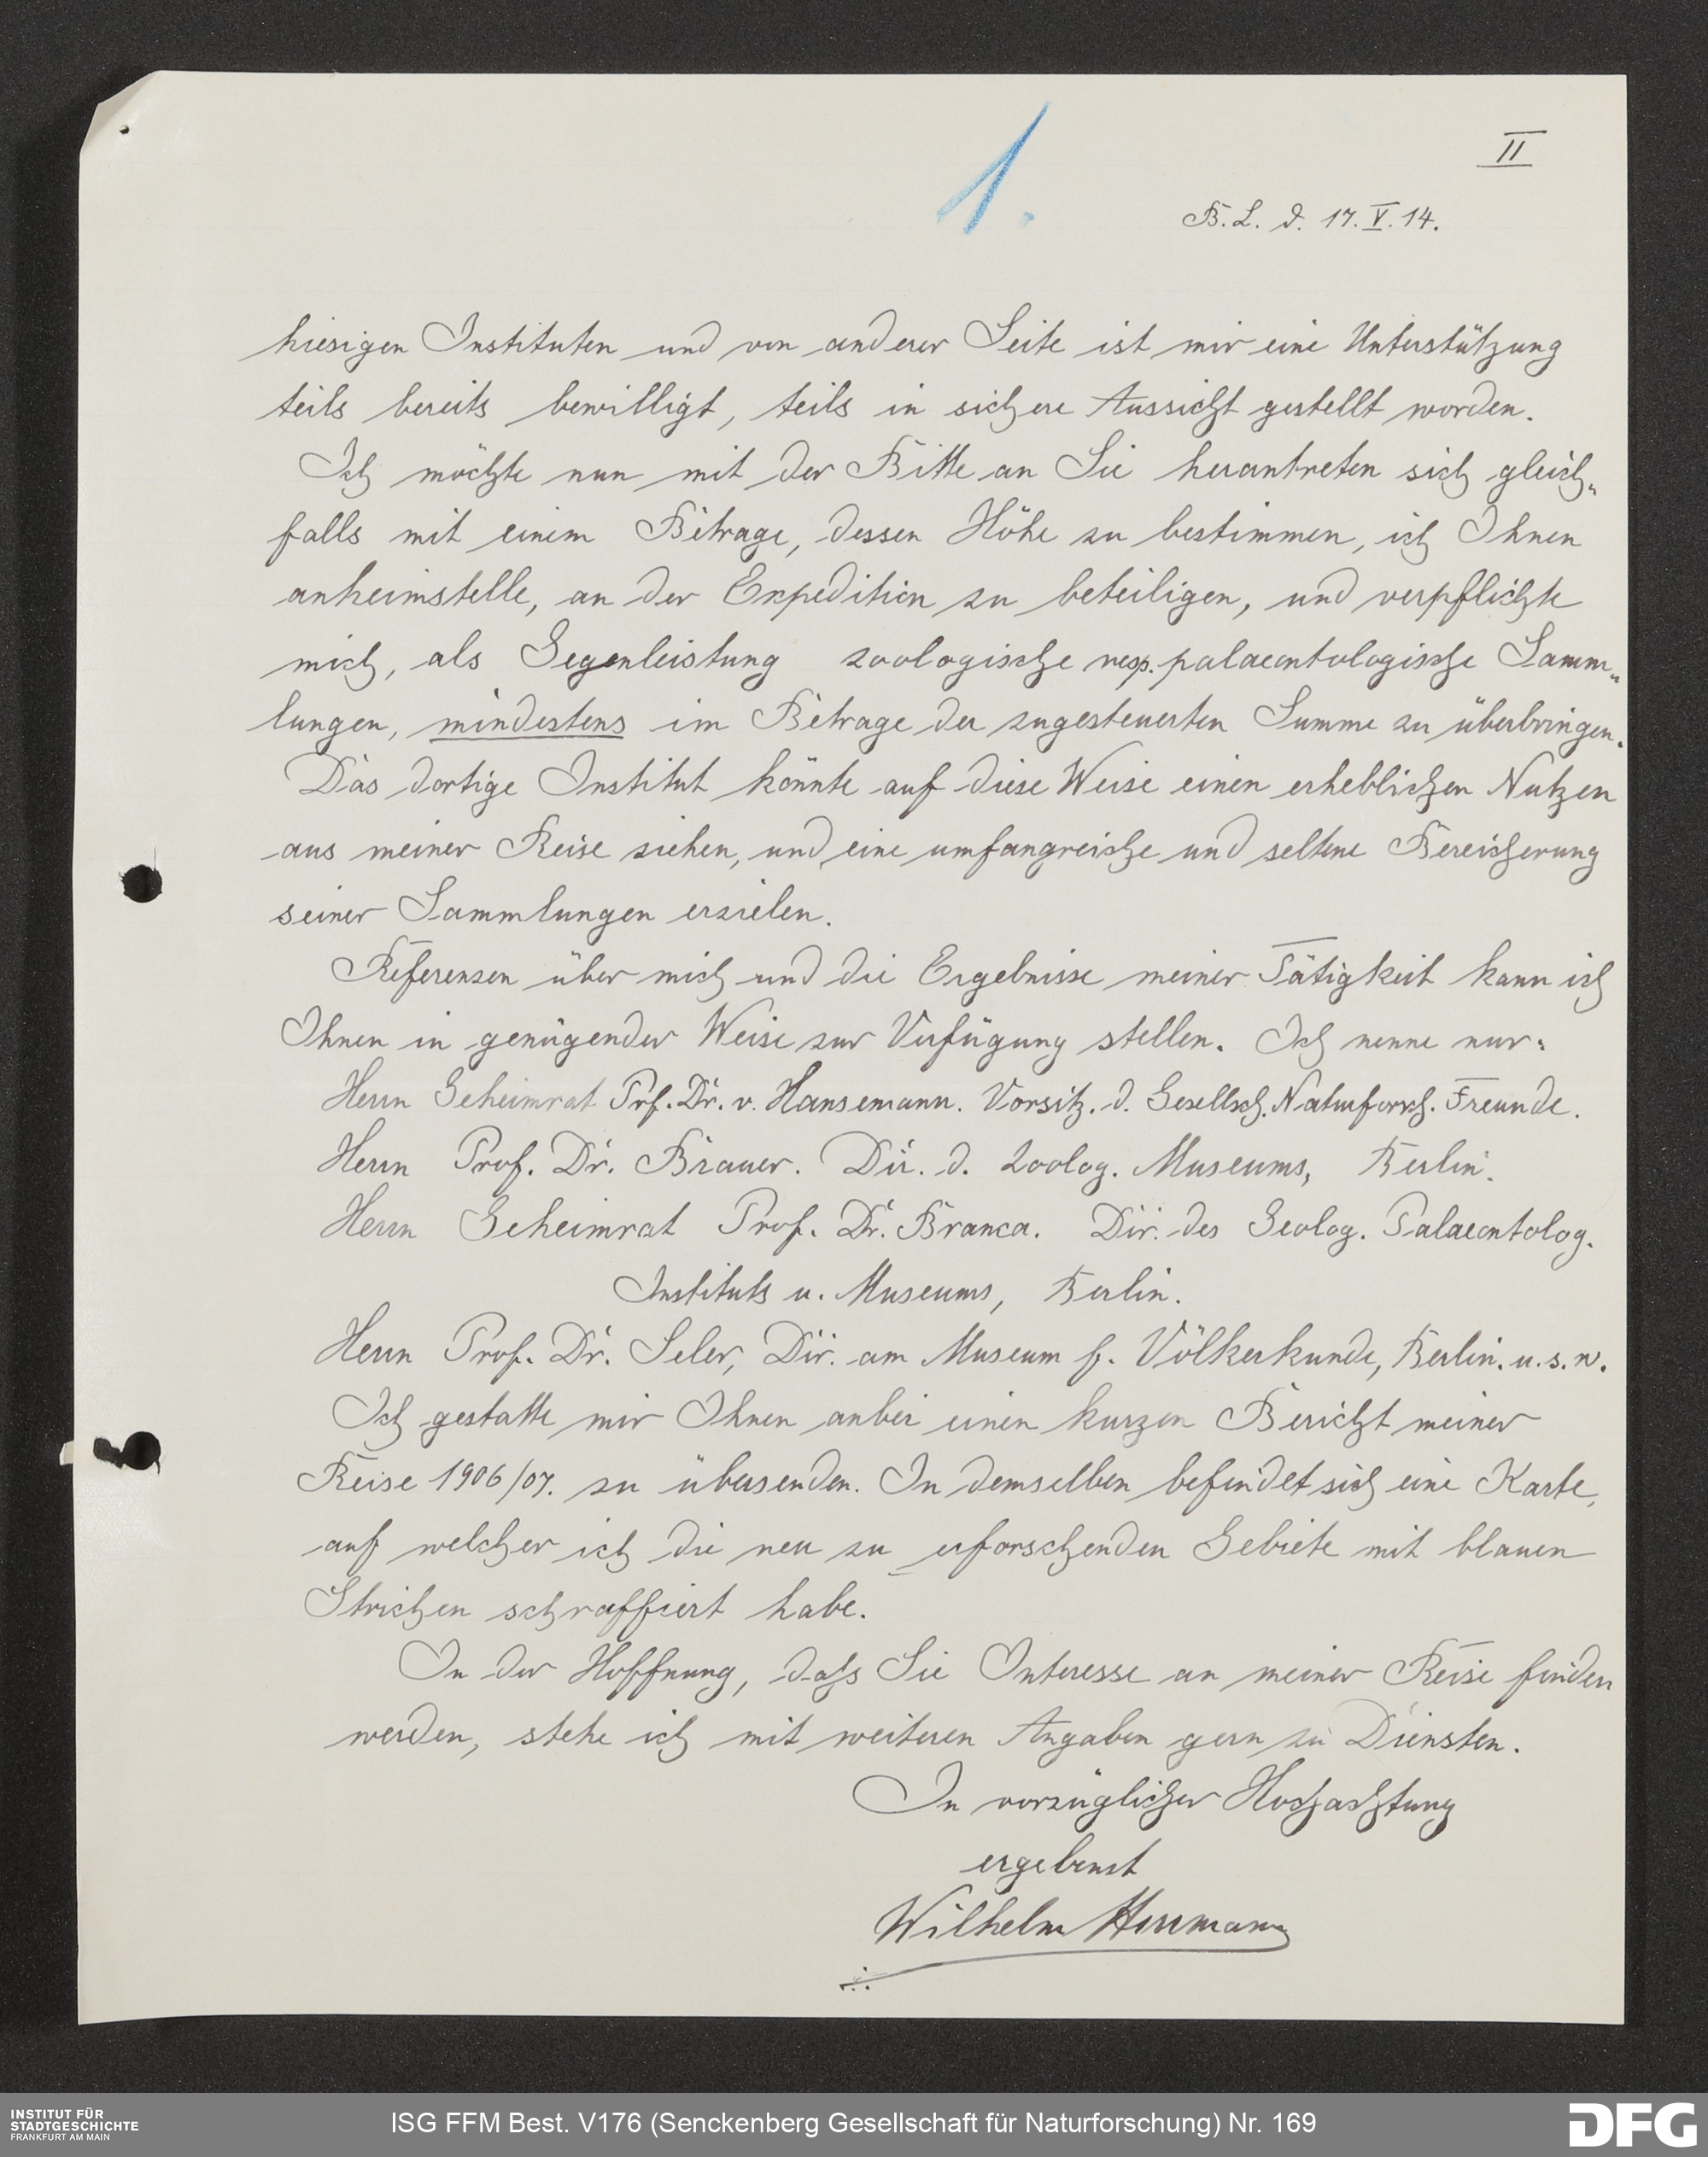 1.
II
B. L. d. 17. V. 14.
hiesigen Instituten und von anderer Seite ist mir eine Unterstützung
teils bereits bewilligt, teils in sichere Aussicht gestellt worden.
Ich möchte nun mit der Bitte an Sie herantreten sich gleich-
falls mit einem Betrage, dessen Höhe zu bestimmen, ich Ihnen
anheimstelle, an der Expedition zu beteiligen, und verpflichte
mich, als Gegenleistung zoologische resp. palaeontologische Samm-
lungen, mindestens im Betrage der zugesteuerten Summe zu überbringen.
Das dortige Institut könnte auf diese Weise einen erheblichen Nutzen
aus meiner Reise ziehen, und eine umfangreiche und seltene Bereicherung
seiner Sammlungen erzielen.
Referenzen über mich und die Ergebnisse meiner Tätigkeit kann ich
Ihnen in genügender Weise zur Verfügung stellen. Ich nenne nur:
Herrn Geheimrat Prf. Dr. v. Hansemann. Vorsitz. d. Gesellsch. Naturforsch. Freunde.
Herrn Prof. Dr. Brauer. Dir. d. Zoolog. Museums, Berlin.
Herrn Geheimrat Prof. Dr. Branca. Dir. des Geolog. Palaeontolog.
Instituts u. Museums, Berlin.
Herrn Prof. Dr. Seler, Dir. am Museum f. Völkerkunde, Berlin. u. s. w.
Ich gestatte mir Ihnen anbei einen kurzen Bericht meiner
Reise 1906/07. zu übersenden. In demselben befindet sich eine Karte,
auf welcher ich die neu zu erforschenden Gebiete mit blauen
Strichen schraffiert habe.
In der Hoffnung, daß Sie Interesse an meiner Reise finden
werden, stehe ich mit weiteren Angaben gern zu Diensten.
In vorzüglicher Hochachtung
ergebenst
Wilhelm Herrmann
INSTITUT FÜR
STADTGESCHICHTE
FRANKFURT AM MAIN
ISG FFM Best. V176 (Senckenberg Gesellschaft für Naturforschung) Nr. 169
DFG